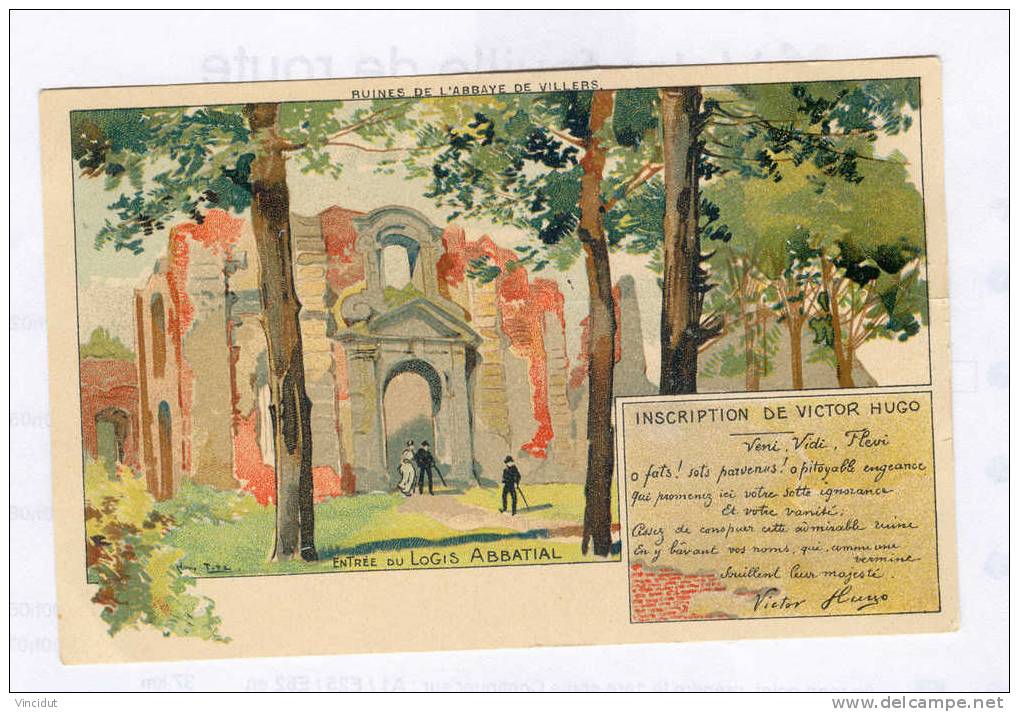 RUINES DE L'ABBAYE DE VILLERS.
INSCRIPTION DE VICTOR HUGO
Veni, Vidi, Flevi
O fats! sots parvenus! O pitoyable engeance
Qui promenez ici vôtre sotte ignorance
Et votre vanité;
Cessez de conspuer cette admirable ruine
En y bâvant vos noms, qui, comme une
vermine
Souillent leur majesté.
Victor Hugo
ENTRÉE DU LOGIS ABBATIAL
Vincidut
delcampe.net